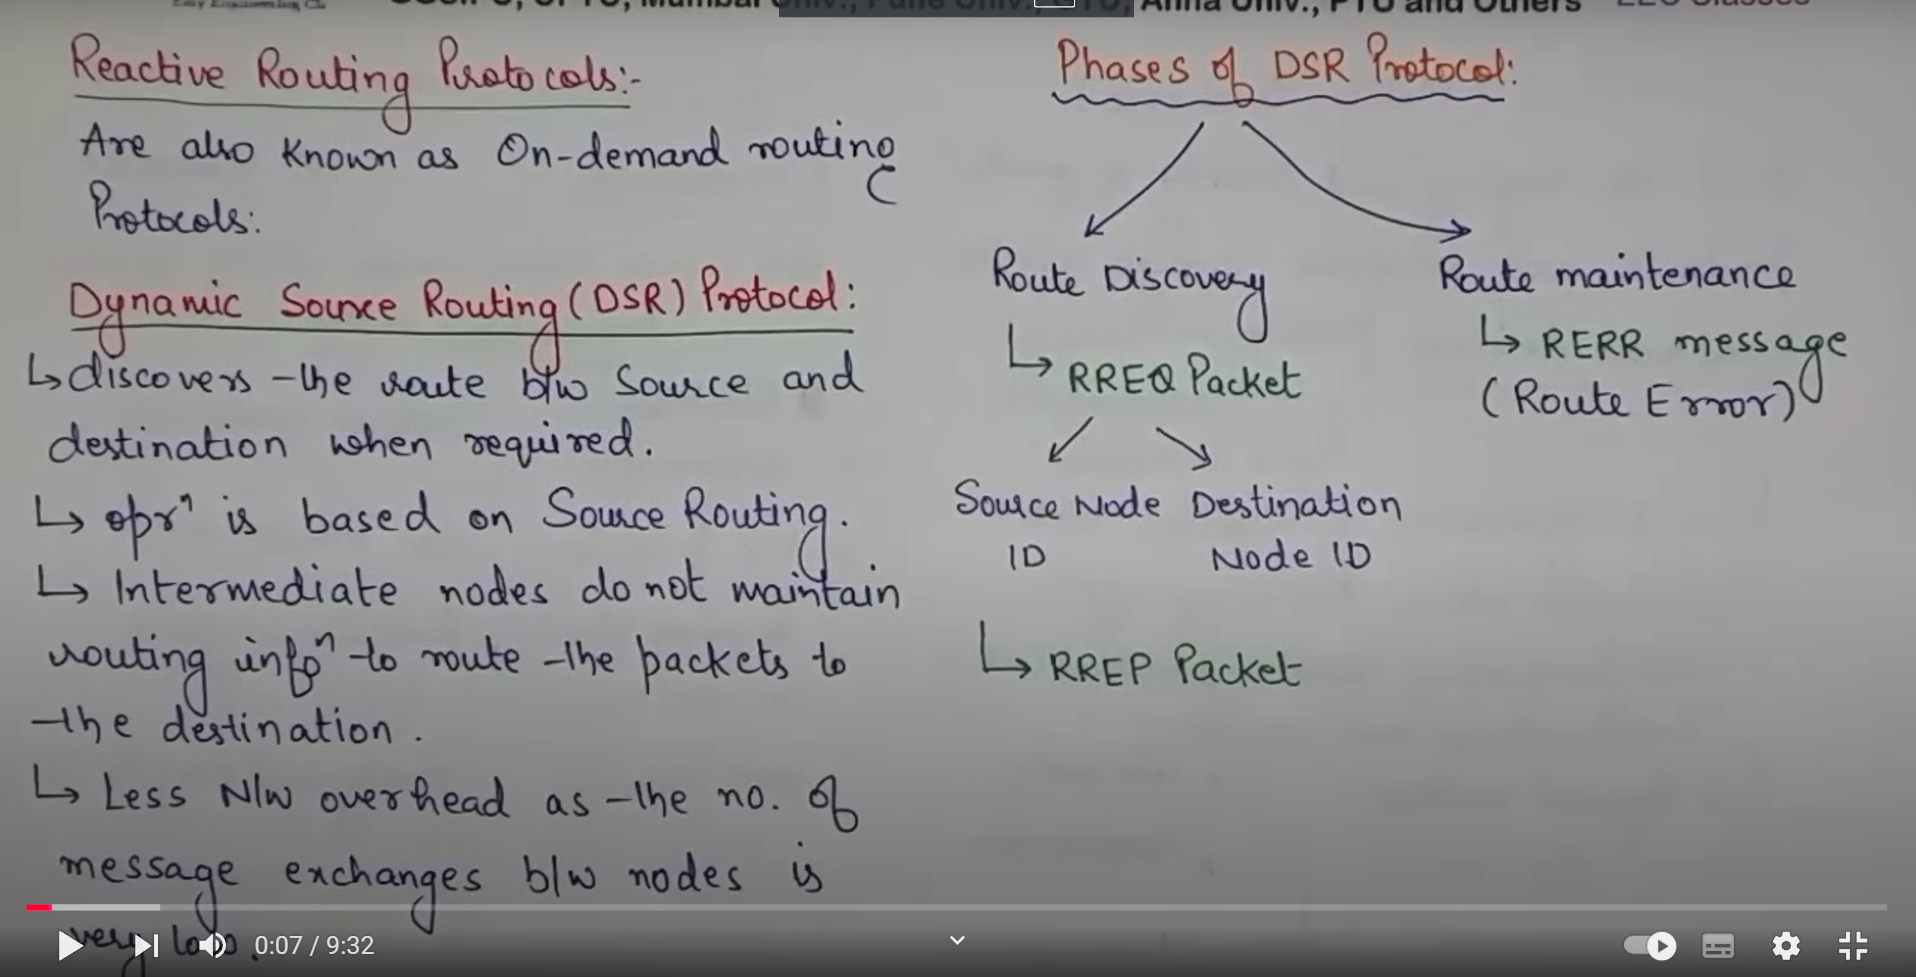 Reactive Routing Protocols:-
Are also known as On-demand routing
Protocols:
Dynamic Source Routing (DSR) Protocol:
↳ discovers the route b/w Source and
destination when required.
↳ oprⁿ is based on Source Routing.
↳ Intermediate nodes do not maintain
routing infoⁿ to route the packets to
the destination.
↳ Less N/w overhead as the no. of
message exchanges b/w nodes is
very low.
Phases of DSR Protocol:
Route Discovery
↳ RREQ Packet
Source Node Destination
ID Node ID
↳ RREP Packet
Route maintenance
↳ RERR message
(Route Error)
0:07 / 9:32